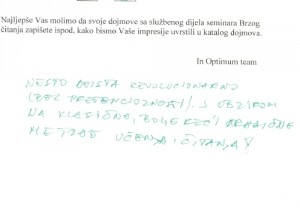 Najljepše Vas molimo da svoje dojmove sa službenog dijela seminara Brzog
čitanja zapišete ispod, kako bismo Vaše impresije uvrstili u katalog dojmova.
In Optimum team
NEŠTO DOISTA REVOLUCIONARNO
(BEZ PRETENCIOZNOSTI) S OBZIROM
NA KLASIČNE, BOLJE REĆI ARHAIČNE
METODE UČENJA I ČITANJA!